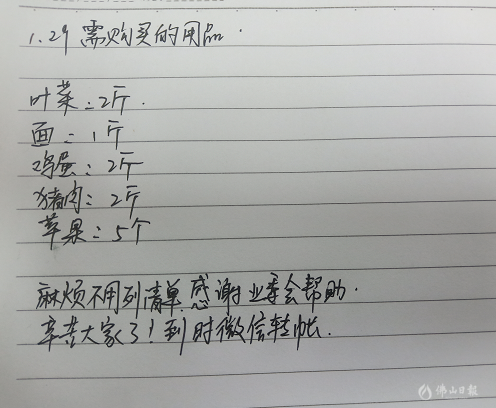 1.29需购买的用品.
叶菜:2斤.
面:1斤
鸡蛋:2斤
猪肉:2斤
苹果:5个
麻烦不用列清单.感谢业委会帮助.
辛苦大家了!到时微信转帐.
佛山日报